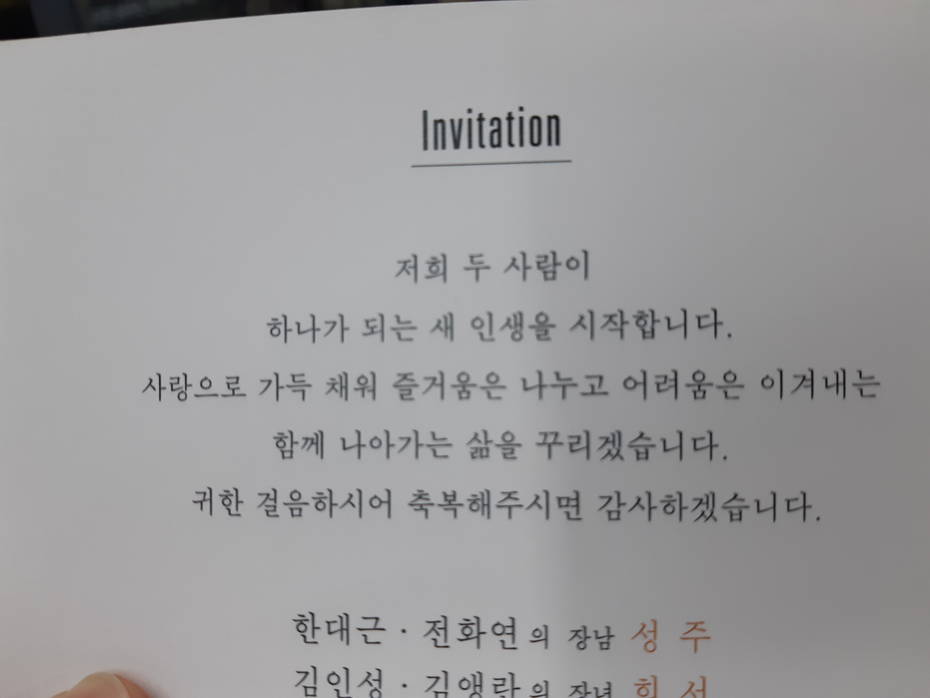 Invitation
저희 두 사람이
하나가 되는 새 인생을 시작합니다.
사랑으로 가득 채워 즐거움은 나누고 어려움은 이겨내는
함께 나아가는 삶을 꾸리겠습니다.
귀한 걸음하시어 축복해주시면 감사하겠습니다.
한대근 · 전화연 의 장남 성 주
김인성 · 김앵란 의 장녀 희 선